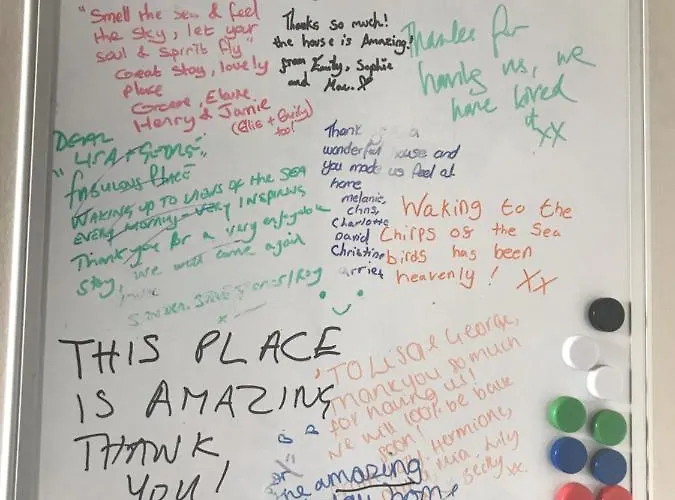 "Smell the sea & feel
the sky, let your
soul & spirit fly"
Great stay, lovely
place
Elaine
Henry & Jamie
(Ellie + Emily)
too!
Thanks so much!
the house is Amazing!
from Emily, Sophie
and
Thanks for
having us, we
have loved
it xx
DEAR
"LISA + GEORGE"
FABULOUS PLACE
WAKING UP TO VIEWS OF THE SEA
EVERY MORNING - VERY INSPIRING
Thank you for a very enjoyable
stay, we will come again
Thank a
wonderful house and
you made us feel at
home
melanie,
chris,
Charlotte
David
Christine
Waking to the
Chirps of the Sea
birds has been
heavenly! XX
THIS PLACE
IS AMAZING
THANK
YOU!
TO Lisa & George,
Thankyou so much
for having us!
We will be back
soon!
Hermione,
mia, Lily
Becky xx
is a
amazing
home